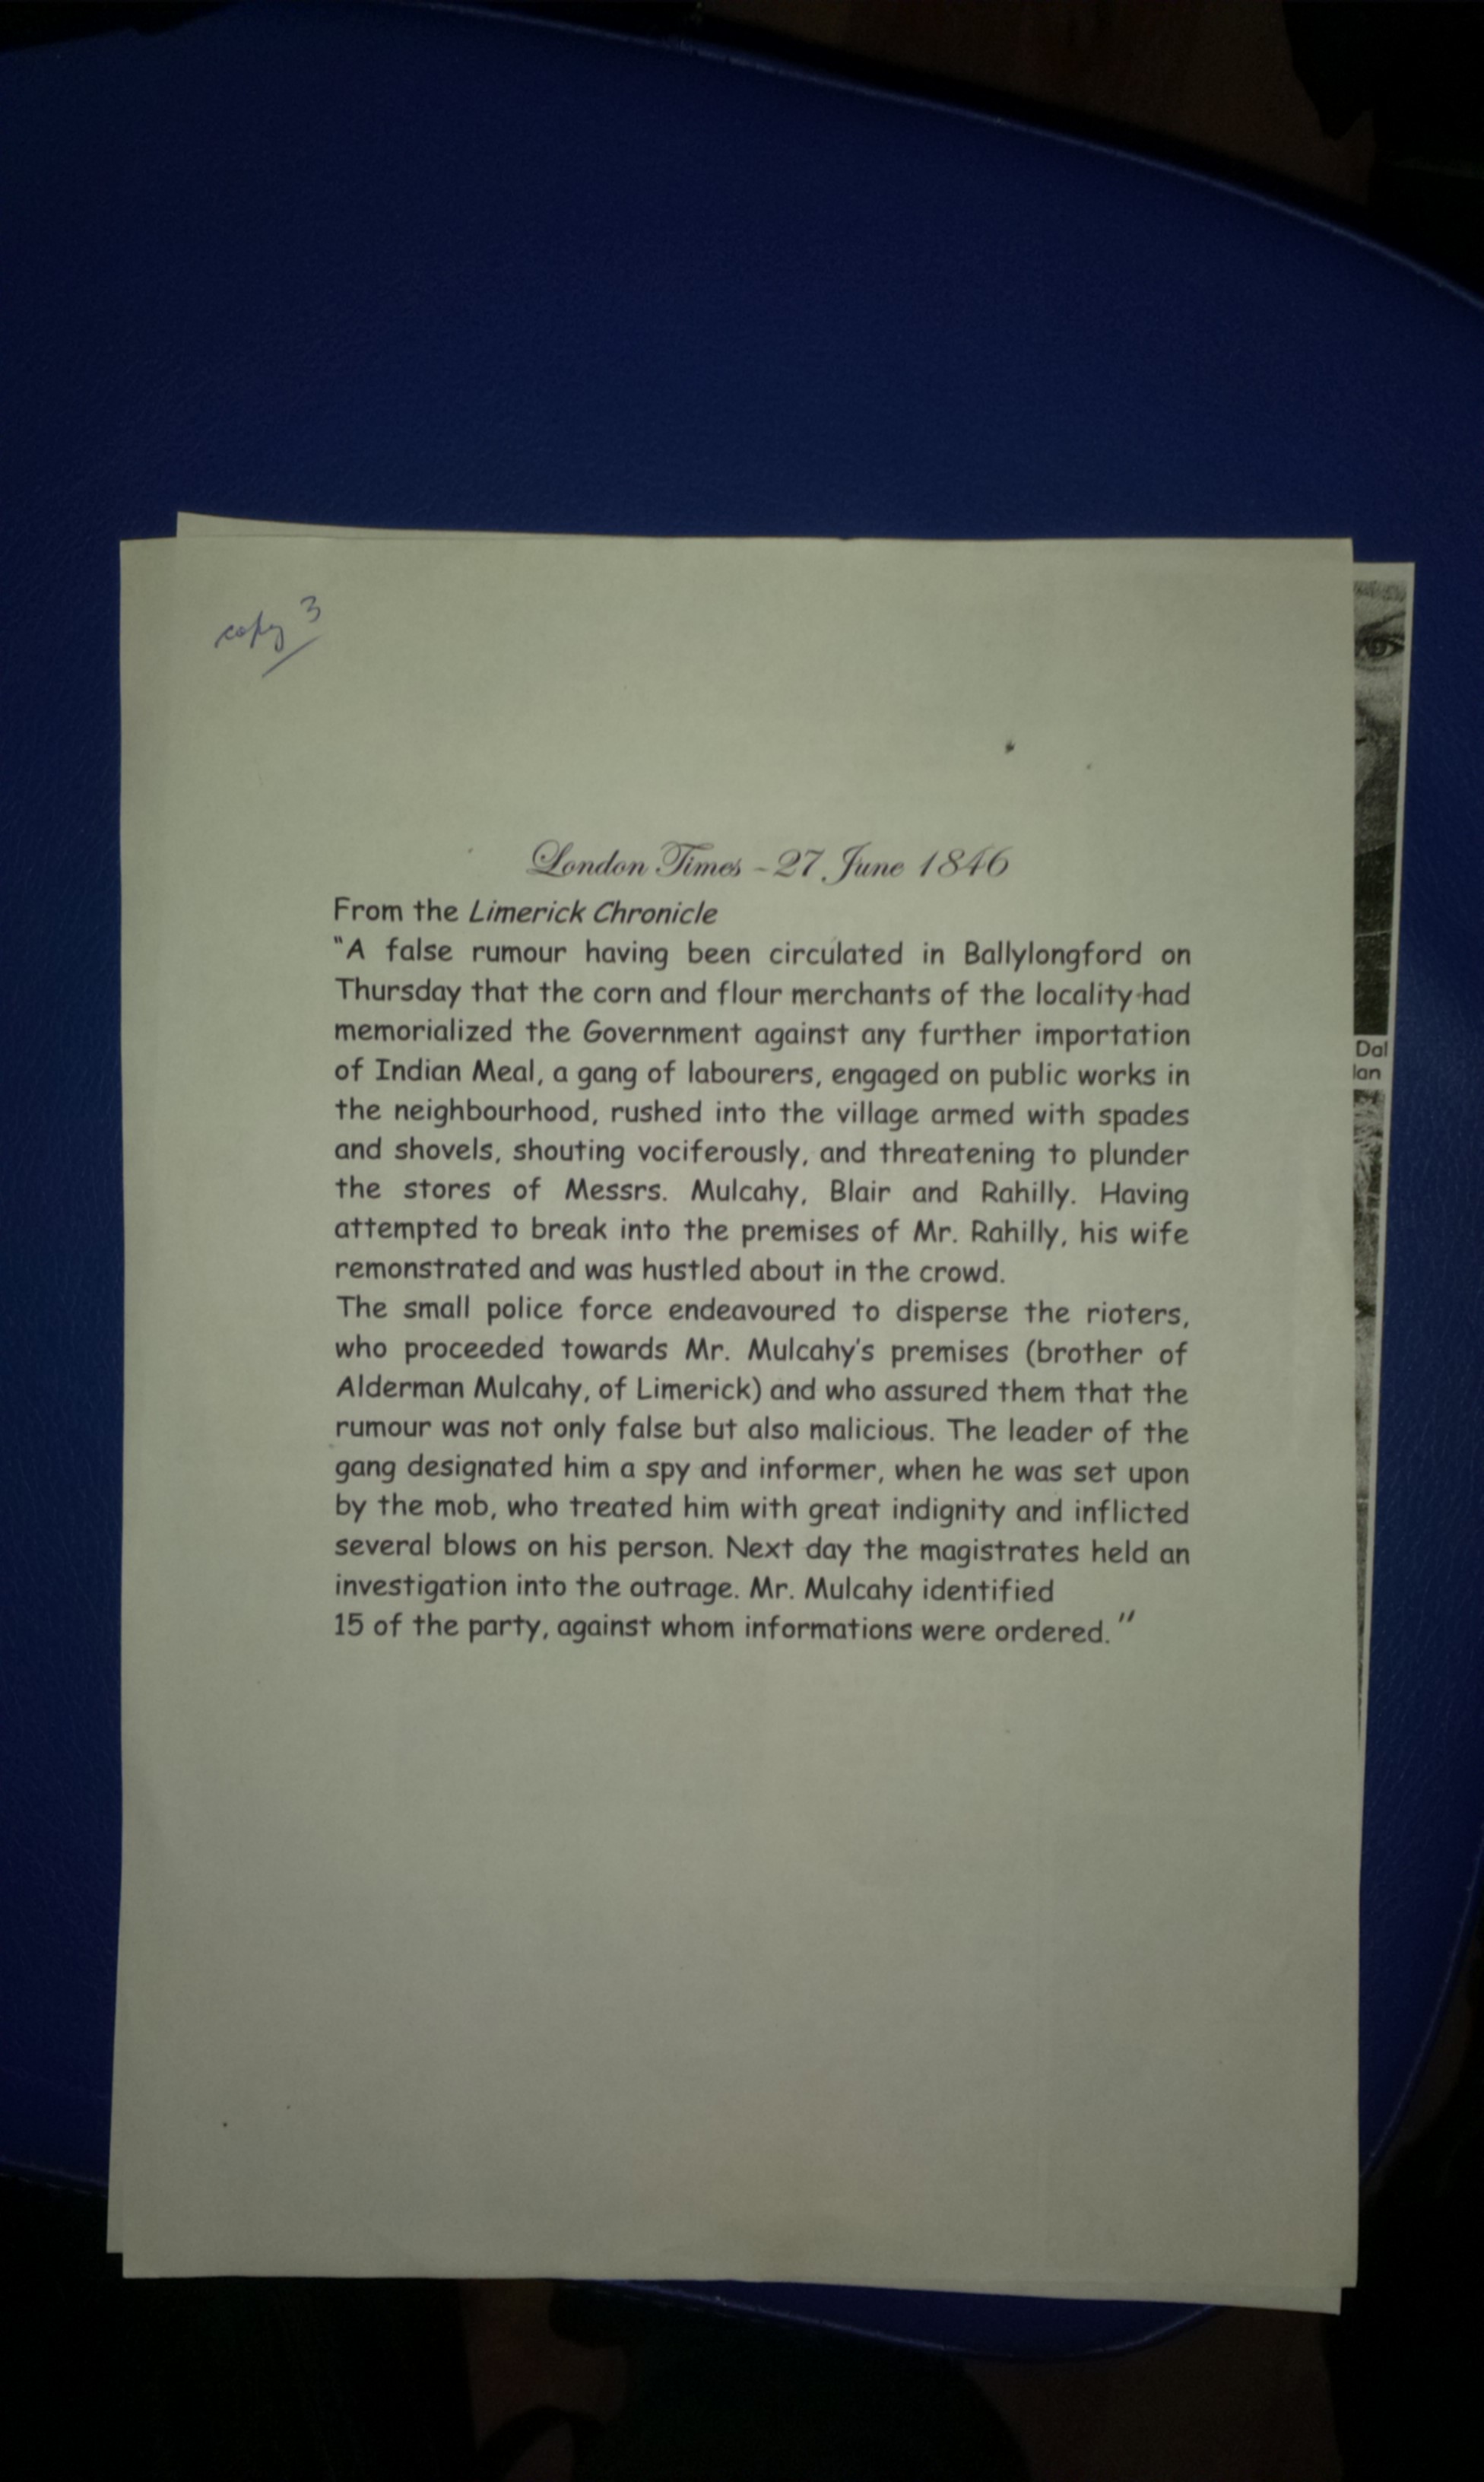 copy 3
London Times - 27 June 1846
From the Limerick Chronicle
"A false rumour having been circulated in Ballylongford on
Thursday that the corn and flour merchants of the locality had
memorialized the Government against any further importation
of Indian Meal, a gang of labourers, engaged on public works in
the neighbourhood, rushed into the village armed with spades
and shovels, shouting vociferously, and threatening to plunder
the stores of Messrs. Mulcahy, Blair and Rahilly. Having
attempted to break into the premises of Mr. Rahilly, his wife
remonstrated and was hustled about in the crowd.
The small police force endeavoured to disperse the rioters,
who proceeded towards Mr. Mulcahy's premises (brother of
Alderman Mulcahy, of Limerick) and who assured them that the
rumour was not only false but also malicious. The leader of the
gang designated him a spy and informer, when he was set upon
by the mob, who treated him with great indignity and inflicted
several blows on his person. Next day the magistrates held an
investigation into the outrage. Mr. Mulcahy identified
15 of the party, against whom informations were ordered."
Dal
lan